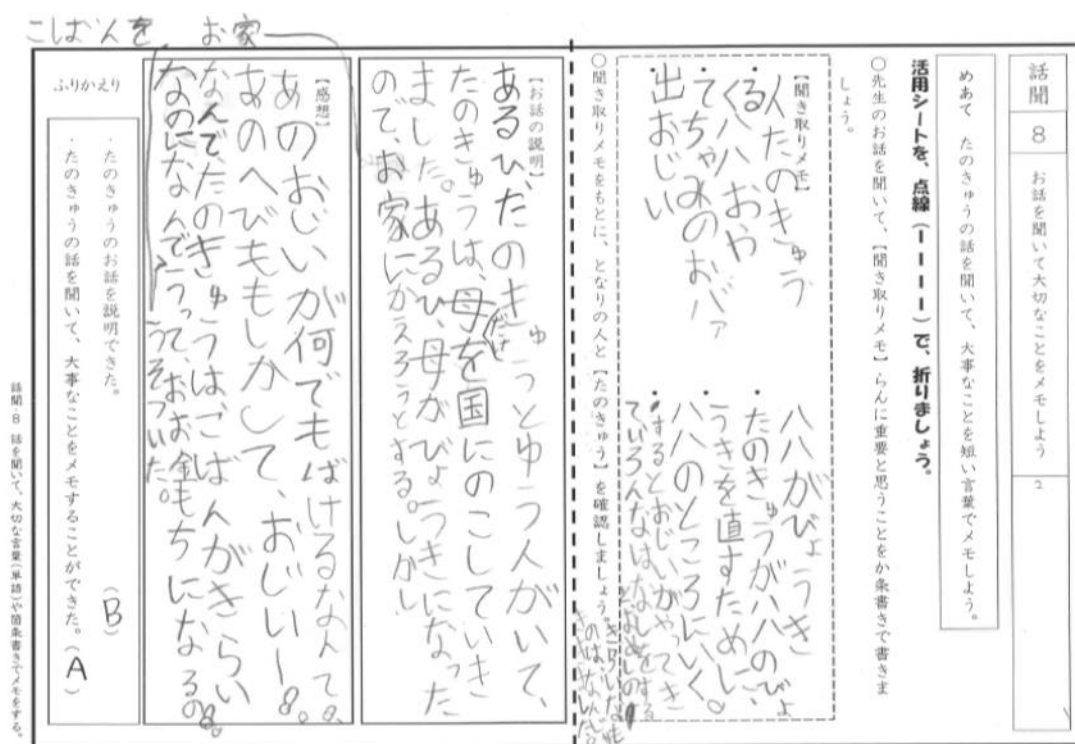 話聞
8
お話を聞いて大切なことをメモしよう
2
めあて たのきゅうの話を聞いて、大事なことを短い言葉でメモしよう。
活用シートを、点線(ーーーー)で、折りましょう。
○先生のお話を聞いて、【聞き取りメモ】らんに重要と思うことをか条書きで書きま
しょう。
【聞き取りメモ】
人たのきゅう
・る
くハハおや
・てちゃみのおバァ
出おじい
ハハがびょうき
・たのきゅうがハハのびょ
うきを直すためし、
ハハのところにいく。
・するとおじいがやってき
ていろんなはなしをする
○聞き取りメモをもとに、となりの人と【たのきゅう】を確認しましょう。
【お話の説明】
あるひ、たのきゅうとゆう人がいて、
たのきゅうは、母だけを国にのこしていき
ました。あるひ、母がびょうきになった
ので、お家にかえろうとする。しかし
【感想】
あのおじいが何でもばけるなんて。
あのへびももしかして、おじいー。
なんでたのきゅうはごはんがきらい
なのになんでうって、おお金もちになるの
うそついた。
こばんを お家
ふりかえり
・たのきゅうのお話を説明できた。(B)
・たのきゅうの話を聞いて、大事なことをメモすることができた。(A)
話聞-8 話を聞いて、大切な言葉(単語)や箇条書きでメモをする。